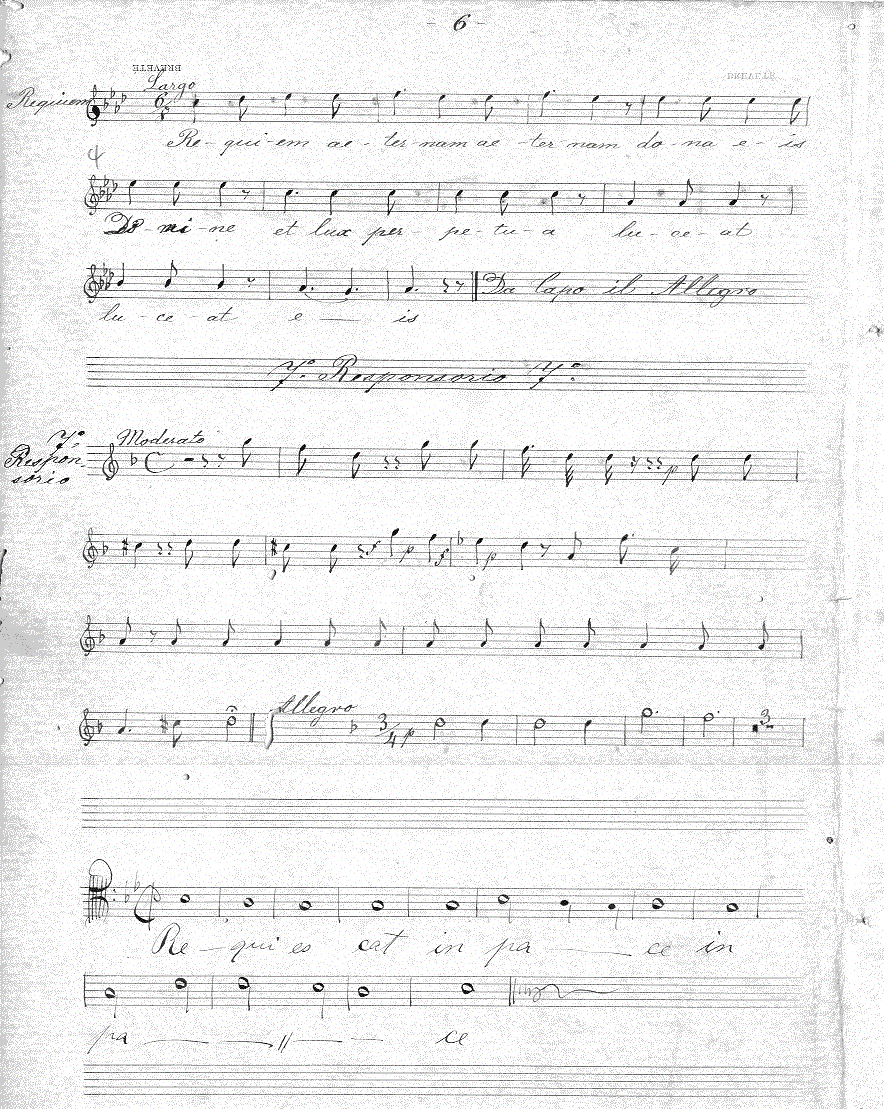 - 6 -
BREVETE
Largo
Requiem
6/8
Re - qui - em ae - ter - nam ae - ter nam do - na e - is
4
Do - mi - ne et lux per - pe - tu - a lu - ce - at
Da Capo il Allegro
lu - ce - at e — is
7º Responsorio 7º
7º Respon-
sorio
Moderato
p
f p f p
Allegro
3/4 p
3
Re - qui es cat in pa — ce in
pa — — " — ce